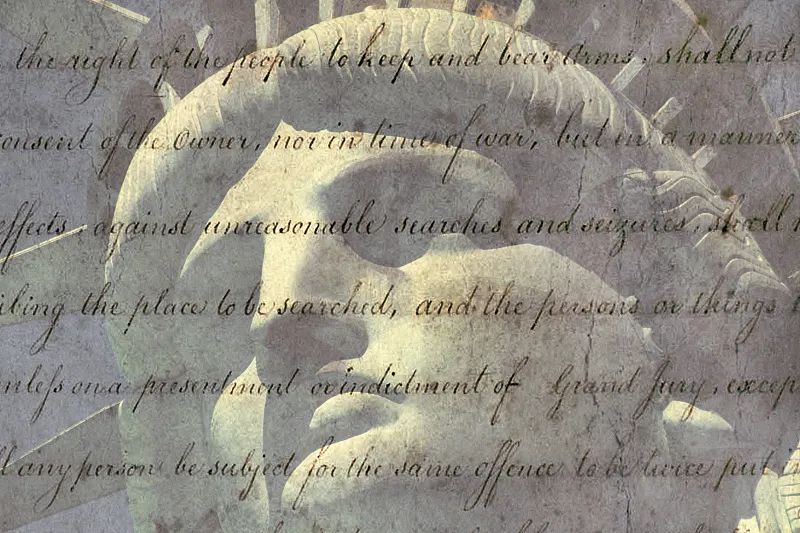 the right of the people to keep and bear Arms, shall not
consent of the Owner, nor in time of war, but in a manner
effects, against unreasonable searches and seizures, shall
the place to be searched, and the persons or things
on a presentment or indictment of Grand Jury, excep
any person be subject for the same offence to be twice put in